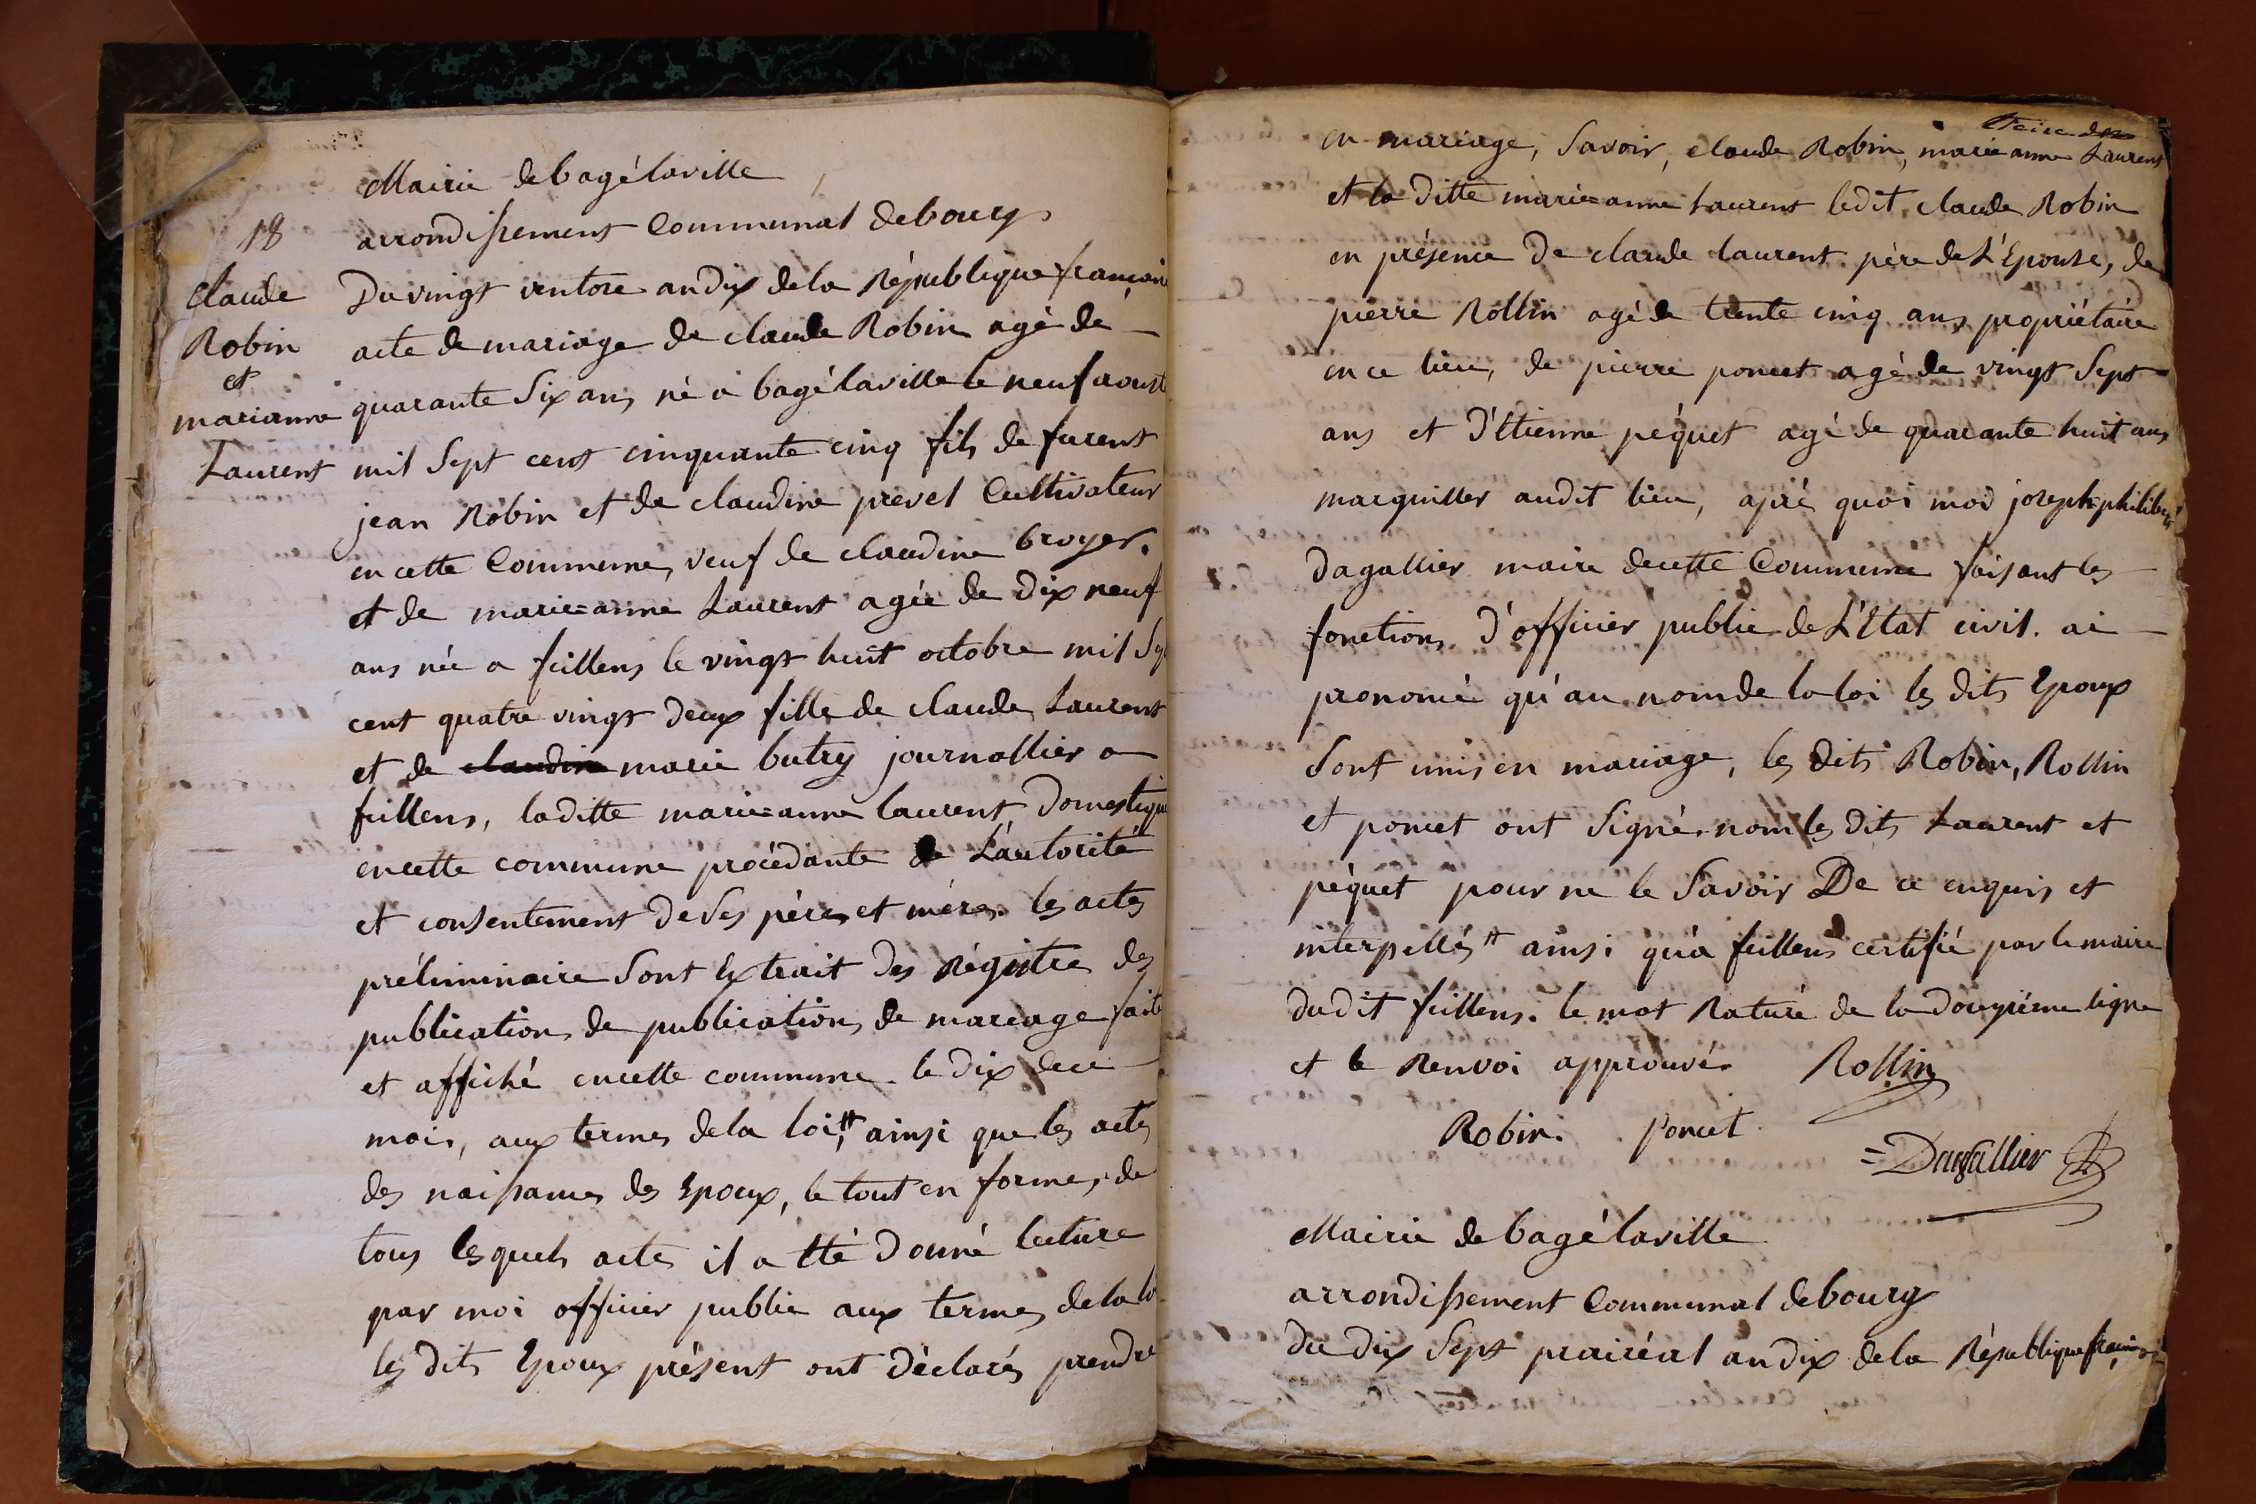 Mairie de bagé laville
arrondissement Communal de bourg
18
Claude
Robin
et
marianne
Laurent
Du vingt ventose an dix de la République français
acte de mariage de claude Robin agé de
quarante Six ans né a bagé laville le neuf aoust
mil Sept cent cinquante cinq fils de furent
jean Robin et de claudine prevel Cultivateur
en cette Commune, veuf de claudine broyer.
et de marie=anne Laurent agée de dix neuf
ans née a feillens le vingt huit octobre mil Sept
cent quatre vingt deux fille de claude Laurent
et de claudine marie butry journallier a
feillens, laditte marie=anne laurent, Domestique
en cette commune procédante de L'autorité
et consentement de Ses pére et mére. les actes
préliminaire Sont Extrait des Régistre des
publication de publication de mariage faite
et affiché en cette commune le dix de ce
mois, aux termes de la loi, # ainsi que les actes
des naissances des Epoux, le tout en forme, de
tous lesquels actes il a été donné lecture
par moi officier public aux termes de la loi
les dits Epoux présent ont déclarés prendre
en mariage, Savoir, claude Robin, marie anne Laurent
et la ditte marie=anne Laurent ledit claude Robin
en présence de claude laurent père de L'Epouse, de
pierre Rollin agé de trente cinq ans propriétaire
en ce lieu, de pierre poncet agé de vingt Sept
ans et d'Etienne péquet agé de quarante huit ans
marguiller audit lieu, aprè quoi moi joseph philibert
dagallier maire de cette Commune faisant les
fonctions d'officier public de L'Etat civil. ai
prononcé qu'au nom de la loi les dits Epoux
Sont unis en mariage, les dits Robin, Rollin
et poncet ont Signé, non les dits Laurent et
péquet pour ne le Savoir De ce enquis et
interpellés # ainsi qu'a feillens certifié par le maire
dudit feillens. le mot Raturé de la douzième ligne
et le Renvoi approuvé Rollin
Robin. Poncet
=Dagallier
Mairie de bagé laville
arrondissement Communal de bourg
du dix Sept prairéal an dix de la République français